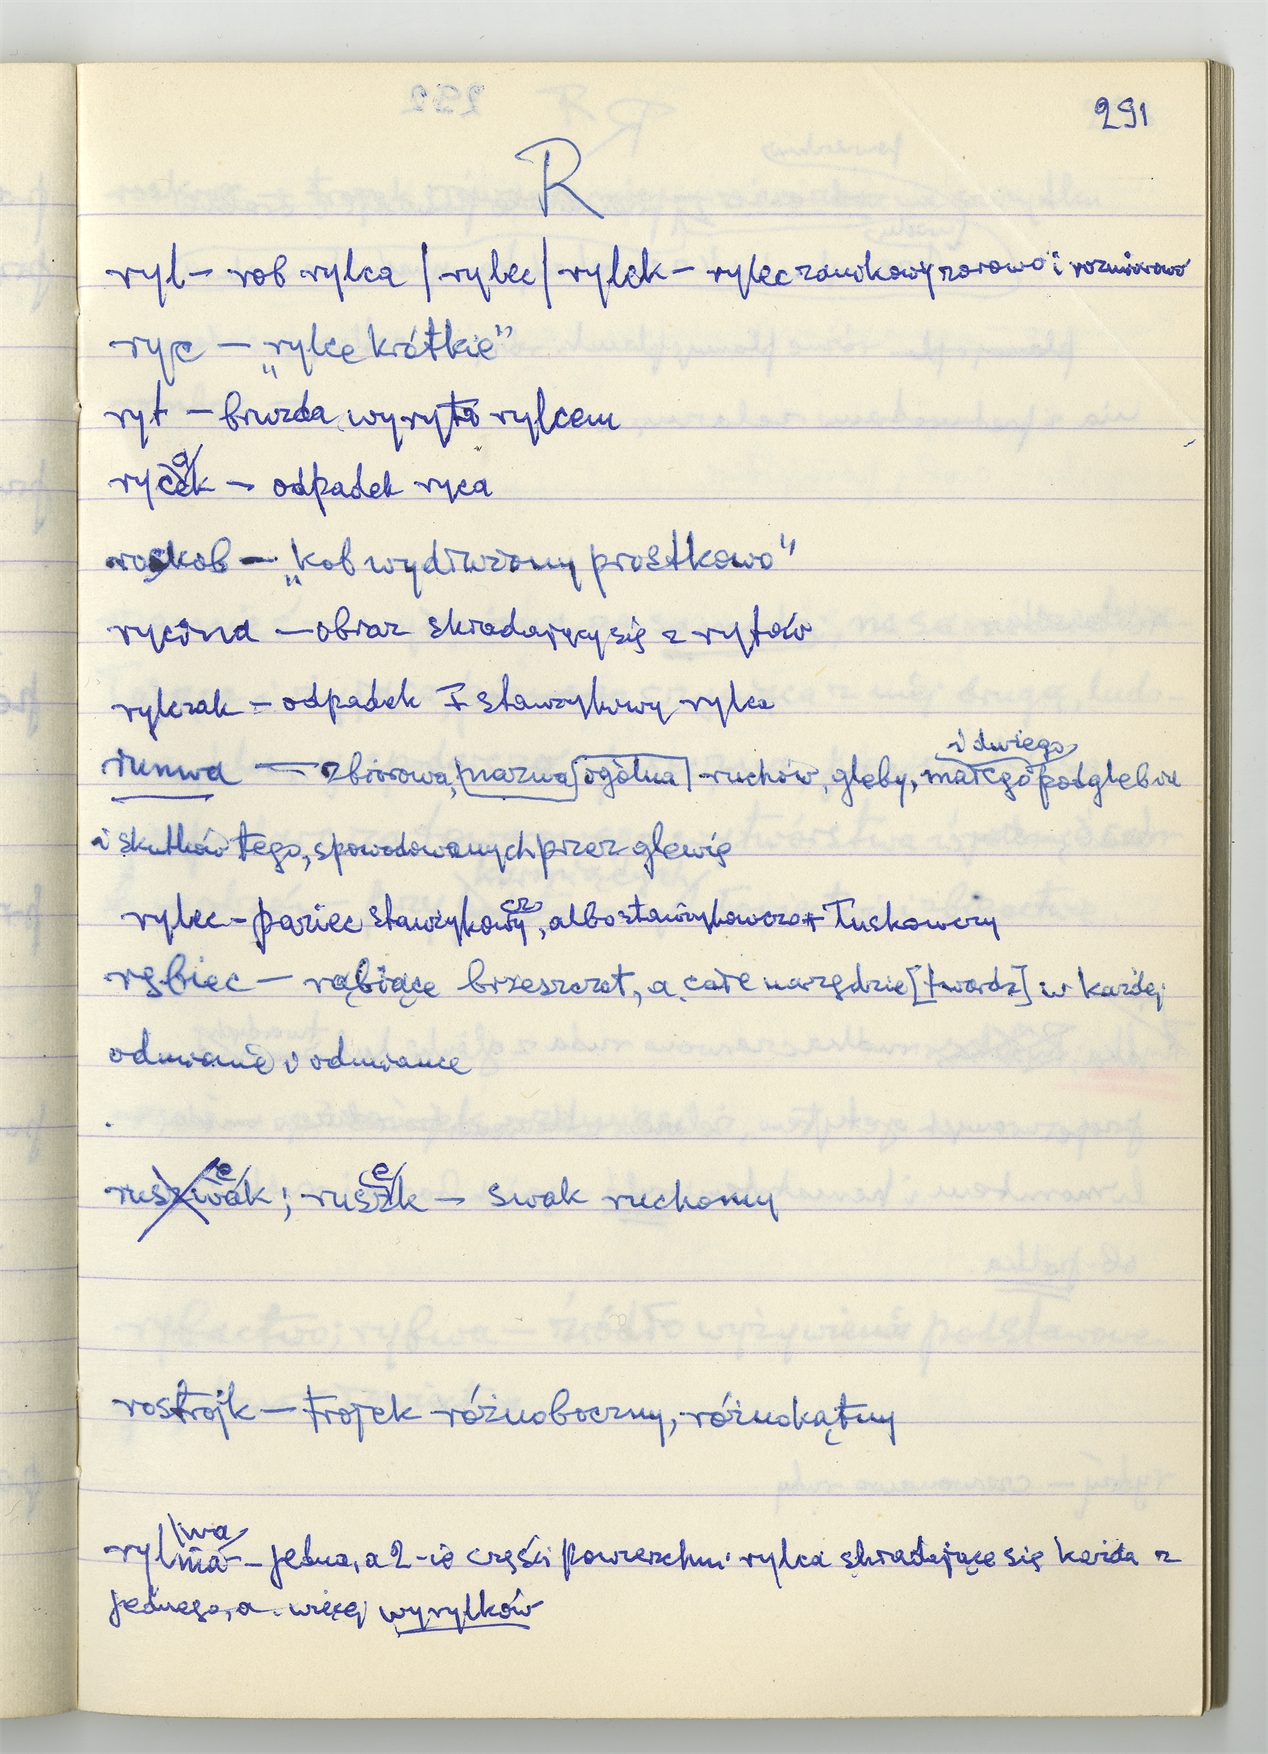 291
R
ryl – rob rylca / rylec / rylek – rylec zanikowy wzorowo i rozmiarowo
ryc – „rylce krótkie”
ryt – bruzda wyryta rylcem
rycek – odpadek ryca
roskob – „kob wydłużony prostkowo”
rycina – obraz składający się z rytów
rylczak – odpadek I stawzykowy rylca
runwa — zbiorowa, [nazwa] ogólna ruchów, gleby, małego i dwiego podglebia
i skutków tego, spowodowanych przez glewię
rylec – pariec stawzykowy cz, albo stawzykowczo + łuskowczy
rębiec – rąbiące brzeszczot, a całe narzędzie [twardz] w każdej
odmianie i odmiance
ruszwak ; ruszek – swak ruchomy
rostrojk – trojek różnoboczny, różnokątny
rylma wa – jedna, a 2-ie części powierzchni rylca składające się każda z
jednego, a więcej wyrylków